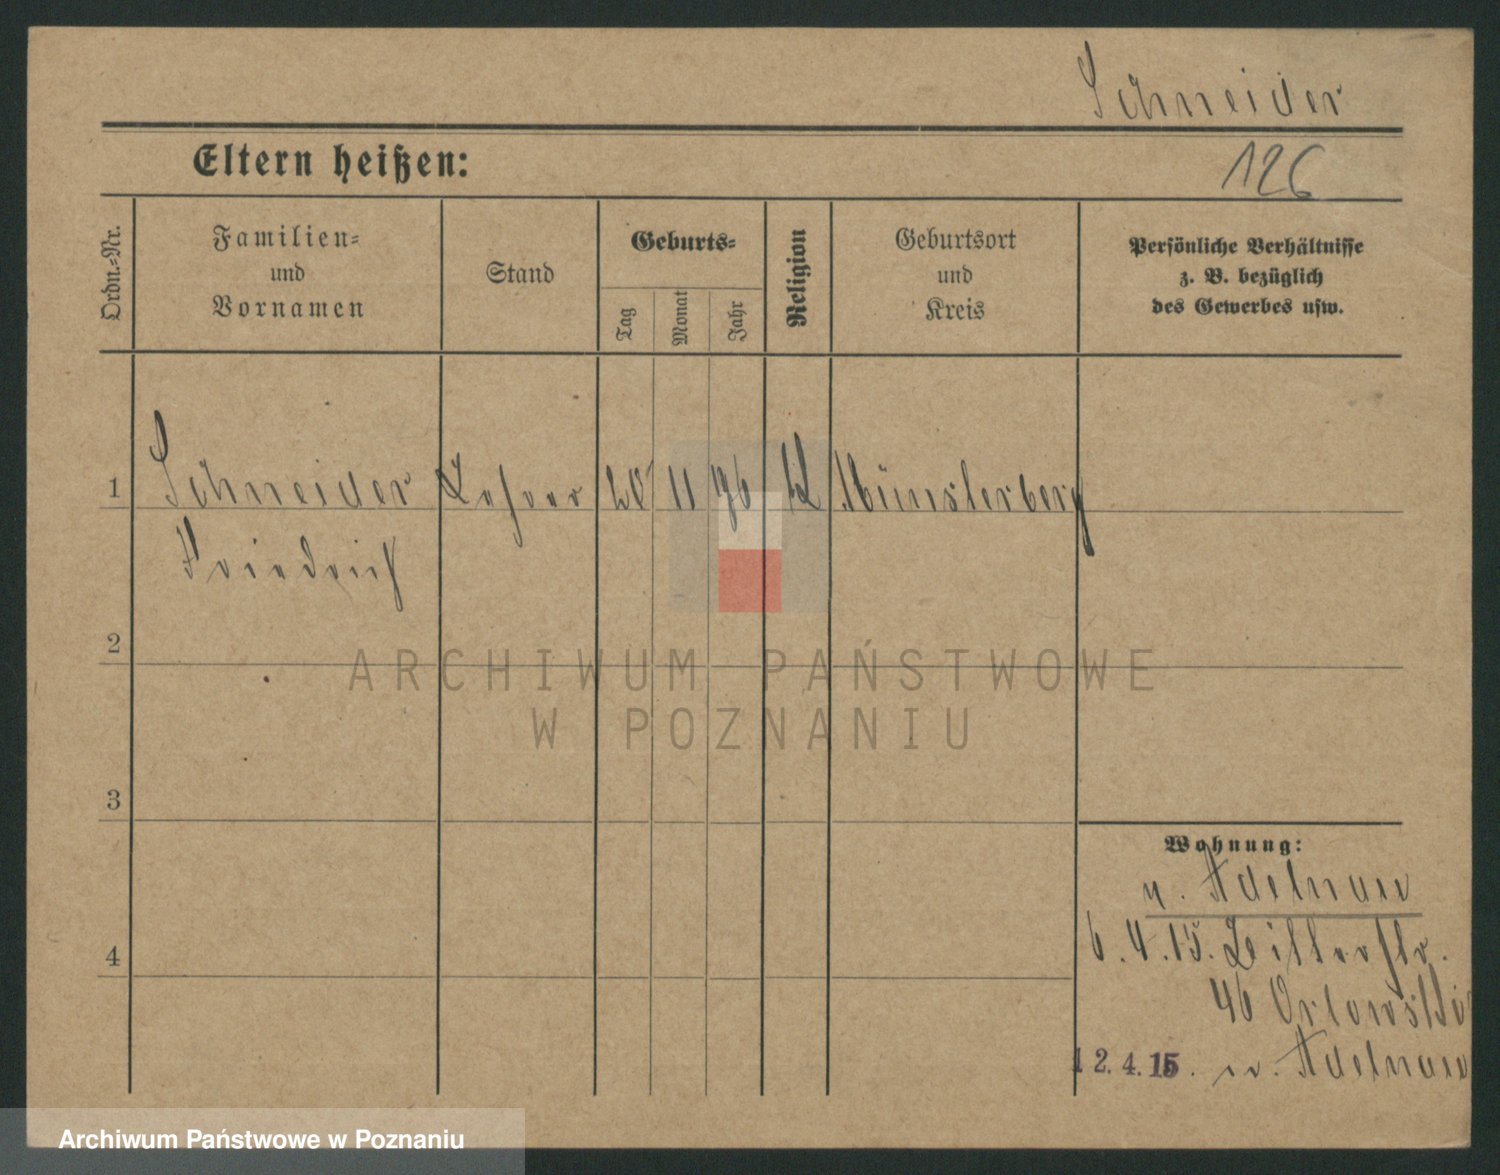 Schneider
Eltern heißen:
126
Ordn.-Nr.
Familien- und Vornamen
Stand
Geburts-
Tag
Monat
Jahr
Religion
Geburtsort und Kreis
Persönliche Verhältnisse
z. B. bezüglich
des Gewerbes usw.
1 Schneider Lehrer 20 11 96 K Münsterberg
Friedrich
2
ARCHIWUM PAŃSTWOWE
W POZNANIU
3
Wohnung:
v. Adelnau
4
6.4.15.
46 Orlowski
12.4.15. n. Adelnau
Archiwum Państwowe w Poznaniu